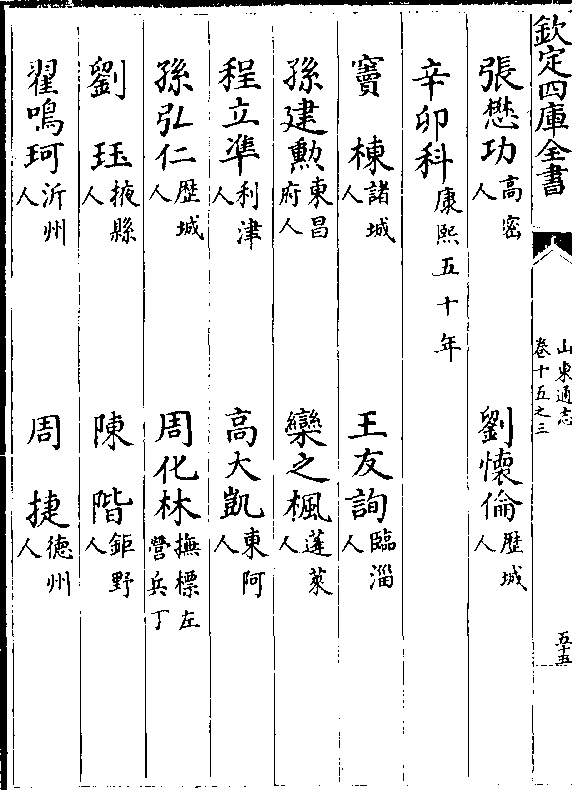 欽定四庫全書
山東通志
卷十五之三
五十五
張懋功高密人
劉懷倫歴城人
辛卯科康熙五十年
竇棟諸城人
王友詢臨淄人
孫建勲東昌府人
欒之楓蓬萊人
程立準利津人
高大凱東阿人
孫弘仁歴城人
周化林撫標左營兵丁
劉珏掖縣人
陳階鉅野人
翟鳴珂沂州人
周捷德州人